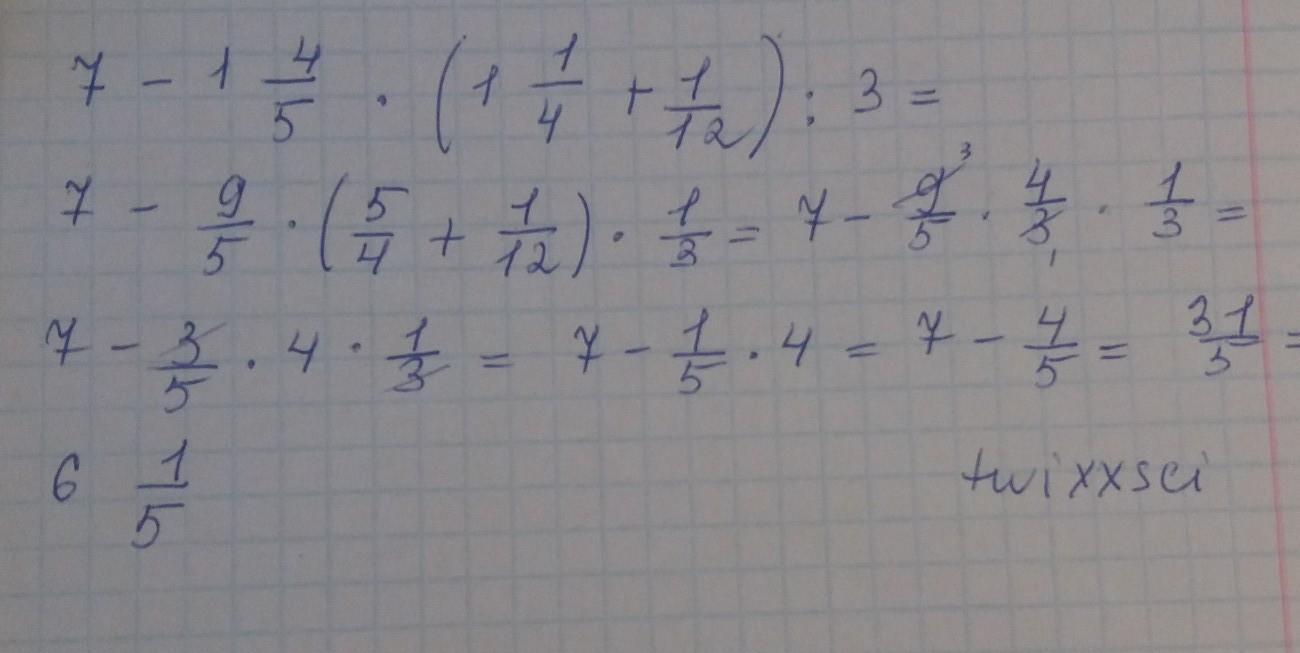 7 - 1 4/5 · (1 1/4 + 1/12) : 3 =
7 - 9/5 · (5/4 + 1/12) · 1/3 = 7 - 9/5 3 · 4/3 1 · 1/3 =
7 - 3/5 · 4 · 1/3 = 7 - 1/5 · 4 = 7 - 4/5 = 31/5 =
6 1/5
twixxsci